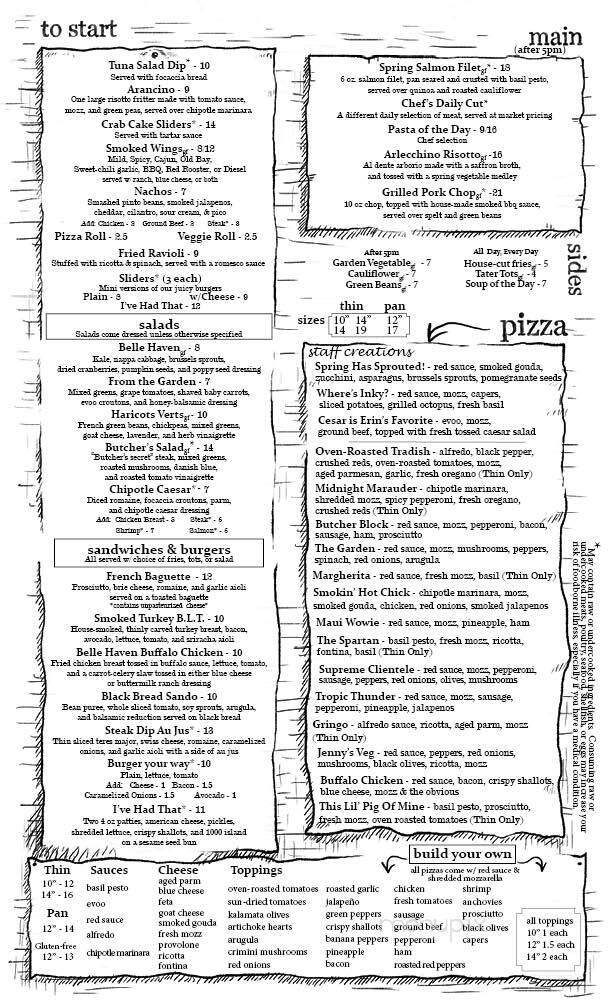 to start
Tuna Salad Dip* - 10
Served with focaccia bread
Arancino - 9
One large risotto fritter made with tomato sauce,
mozz, and green peas, served over chipotle marinara
Crab Cake Sliders* - 14
Served with tartar sauce
Smoked Wings gf - 8|12
Mild, Spicy, Cajun, Old Bay,
Sweet-chili garlic, BBQ, Red Rooster, or Diesel
served w/ ranch, blue cheese, or both
Nachos - 7
Smashed pinto beans, smoked jalapenos,
cheddar, cilantro, sour cream, & pico
Add: Chicken - 2 Ground Beef - 2 Steak* - 3
Pizza Roll - 2.5 Veggie Roll - 2.5
Fried Ravioli - 9
Stuffed with ricotta & spinach, served with a romesco sauce
Sliders* (3 each)
Mini versions of our juicy burgers
Plain - 8 w/Cheese - 9
I've Had That - 12
salads
Salads come dressed unless otherwise specified
Belle Haven gf - 8
Kale, nappa cabbage, brussels sprouts,
dried cranberries, pumpkin seeds, and poppy seed dressing
From the Garden - 7
Mixed greens, grape tomatoes, shaved baby carrots,
evoo croutons, and honey-balsamic dressing
Haricots Verts gf - 10
French green beans, chickpeas, mixed greens,
goat cheese, lavender, and herb vinaigrette
Butcher's Salad gf* - 14
"Butcher's secret" steak, mixed greens,
roasted mushrooms, danish blue,
and roasted tomato vinaigrette
Chipotle Caesar* - 7
Diced romaine, focaccia croutons, parm,
and chipotle caesar dressing
Add: Chicken Breast - 5 Steak* - 6
Shrimp* - 7 Salmon* - 6
sandwiches & burgers
All served w/ choice of fries, tots, or salad
French Baguette - 12
Prosciutto, brie cheese, romaine, and garlic aioli
served on a toasted baguette
*contains unpasteurized cheese*
Smoked Turkey B.L.T. - 10
House-smoked, thinly carved turkey breast, bacon,
avocado, lettuce, tomato, and sriracha aioli
Belle Haven Buffalo Chicken - 10
Fried chicken breast tossed in buffalo sauce, lettuce, tomato,
and a carrot-celery slaw tossed in either blue cheese
or buttermilk ranch dressing
Black Bread Sando - 10
Bean puree, whole sliced tomato, soy sprouts, arugula,
and balsamic reduction served on black bread
Steak Dip Au Jus* - 13
Thin sliced teres major, swiss cheese, romaine, caramelized
onions, and garlic aioli with a side of au jus
Burger your way* - 10
Plain, lettuce, tomato
Add: Cheese - 1 Bacon - 1.5
Caramelized Onions - 1.5 Avocado - 1
I've Had That* - 11
Two 4 oz patties, american cheese, pickles,
shredded lettuce, crispy shallots, and 1000 island
on a sesame seed bun
main
(after 5pm)
Spring Salmon Filet gf* - 18
6 oz. salmon filet, pan seared and crusted with basil pesto,
served over quinoa and roasted cauliflower
Chef's Daily Cut*
A different daily selection of meat, served at market pricing
Pasta of the Day - 9|16
Chef selection
Arlecchino Risotto gf - 16
Al dente arborio made with a saffron broth,
and tossed with a spring vegetable medley
Grilled Pork Chop gf* - 21
10 oz chop, topped with house-made smoked bbq sauce,
served over spelt and green beans
sides
After 5pm
Garden Vegetable gf - 7
Cauliflower gf - 7
Green Beans gf - 7
All Day, Every Day
House-cut fries gf - 5
Tater Tots gf - 4
Soup of the Day - 7
pizza
thin pan
sizes 10" 14" 12"
14 19 17
staff creations
Spring Has Sprouted! - red sauce, smoked gouda,
zucchini, asparagus, brussels sprouts, pomegranate seeds
Where's Inky? - red sauce, mozz, capers,
sliced potatoes, grilled octopus, fresh basil
Cesar is Erin's Favorite - evoo, mozz,
ground beef, topped with fresh tossed caesar salad
Oven-Roasted Tradish - alfredo, black pepper,
crushed reds, oven-roasted tomatoes, mozz,
aged parmesan, garlic, fresh oregano (Thin Only)
Midnight Marauder - chipotle marinara,
shredded mozz, spicy pepperoni, fresh oregano,
crushed reds (Thin Only)
Butcher Block - red sauce, mozz, pepperoni, bacon,
sausage, ham, prosciutto
The Garden - red sauce, mozz, mushrooms, peppers,
spinach, red onions, arugula
Margherita - red sauce, fresh mozz, basil (Thin Only)
Smokin' Hot Chick - chipotle marinara, mozz,
smoked gouda, chicken, red onions, smoked jalapenos
Maui Wowie - red sauce, mozz, pineapple, ham
The Spartan - basil pesto, fresh mozz, ricotta,
fontina, basil (Thin Only)
Supreme Clientele - red sauce, mozz, pepperoni,
sausage, peppers, red onions, olives, mushrooms
Tropic Thunder - red sauce, mozz, sausage,
pepperoni, pineapple, jalapenos
Gringo - alfredo sauce, ricotta, aged parm, mozz
(Thin Only)
Jenny's Veg - red sauce, peppers, red onions,
mushrooms, black olives, ricotta, mozz
Buffalo Chicken - red sauce, bacon, crispy shallots,
blue cheese, mozz & the obvious
This Lil' Pig Of Mine - basil pesto, prosciutto,
fresh mozz, oven roasted tomatoes (Thin Only)
* May contain raw or undercooked ingredients. Consuming raw or
undercooked meats, poultry, seafood, shellfish, or eggs may increase your
risk of foodborne illness, especially if you have a medical condition.
build your own
all pizzas come w/ red sauce &
shredded mozzarella
Thin
10" - 12
14" - 16
Pan
12" - 14
Gluten-free
12" - 13
Sauces
basil pesto
evoo
red sauce
alfredo
chipotle marinara
Cheese
aged parm
blue cheese
feta
goat cheese
smoked gouda
fresh mozz
provolone
ricotta
fontina
Toppings
oven-roasted tomatoes
sun-dried tomatoes
kalamata olives
artichoke hearts
arugula
crimini mushrooms
red onions
roasted garlic
jalapeño
green peppers
crispy shallots
banana peppers
pineapple
bacon
chicken
fresh tomatoes
sausage
ground beef
pepperoni
ham
roasted red peppers
shrimp
anchovies
prosciutto
black olives
capers
all toppings
10" 1 each
12" 1.5 each
14" 2 each